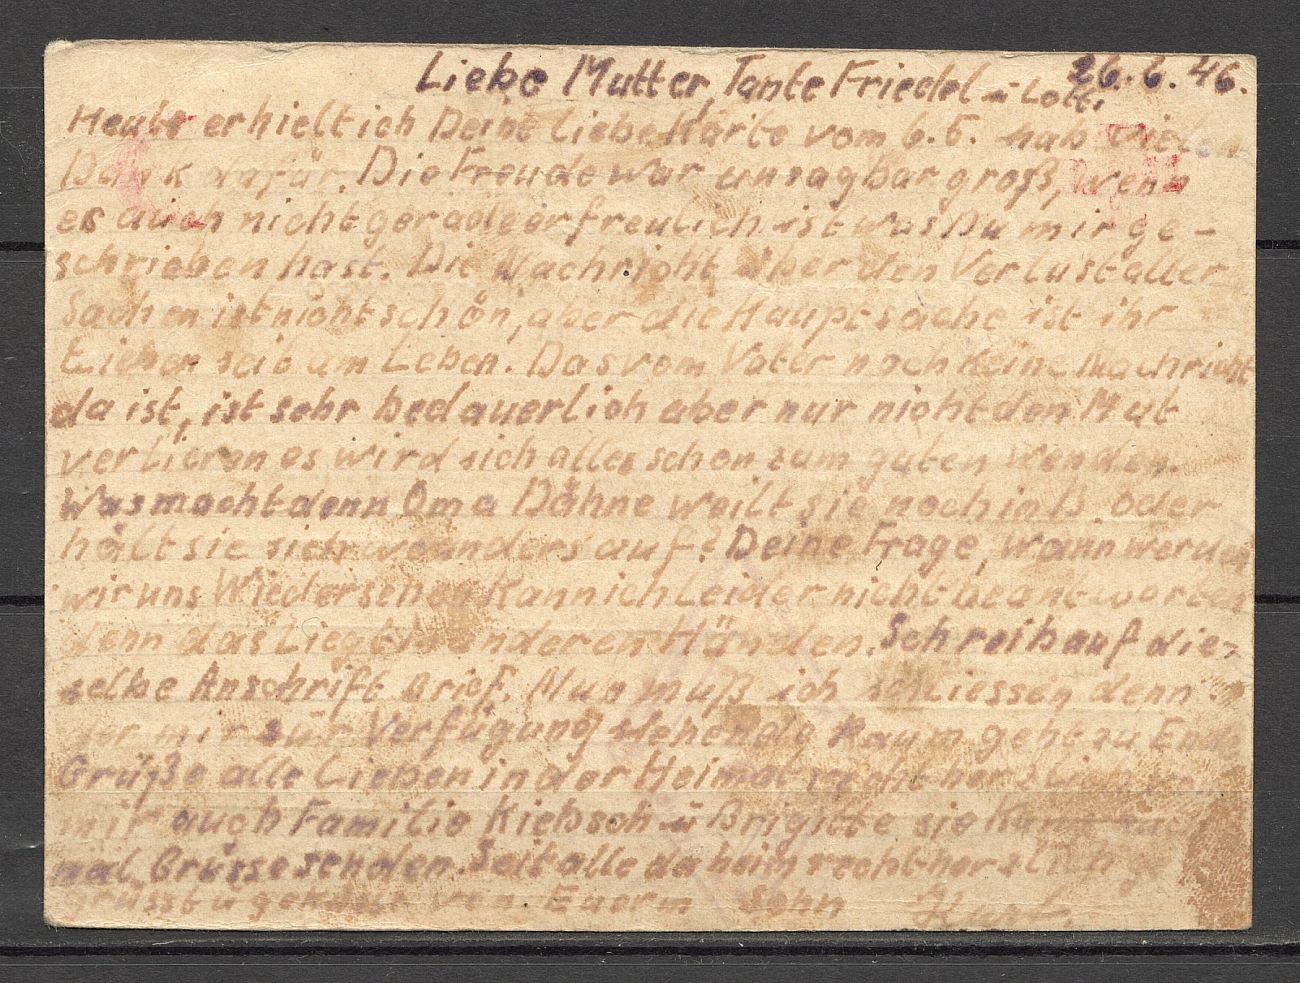 26.6.46.
Liebe Mutter, Tante Friedel u Lotti
Heute erhielt ich Deine liebe Karte vom 6.5. hab vielen
Dank dafür. Die Freude war unsagbar groß, wenn
es auch nicht gerade erfreulich ist was Du mir ge-
schrieben hast. Die Nachricht über den Verlust aller
Sachen ist nicht schön, aber die Hauptsache ist ihr
Lieben seid am Leben. Das vom Vater noch keine Nachricht
da ist, ist sehr bedauerlich aber nur nicht den Mut
verlieren es wird sich alles schon zum guten wenden.
Was macht denn Oma Dähne weilt sie noch in B. oder
hält sie sich wo anders auf? Deine Frage, wann werden
wir uns Wiedersehen kann ich Leider nicht beantworten
denn das Liegt in anderen Händen. Schreib auf die-
selbe Anschrift Brief. Nun muß ich schliessen denn
der mir zur Verfügung stehende Raum geht zu Ende
Grüße alle Lieben in der Heimat recht herzlich
mir auch Familie Kießsch u Brigitte sie
mal Grüsse senden. Seit alle daheim recht herzlich ge
grüsst u geküsst von Euerm Sohn Kurt.